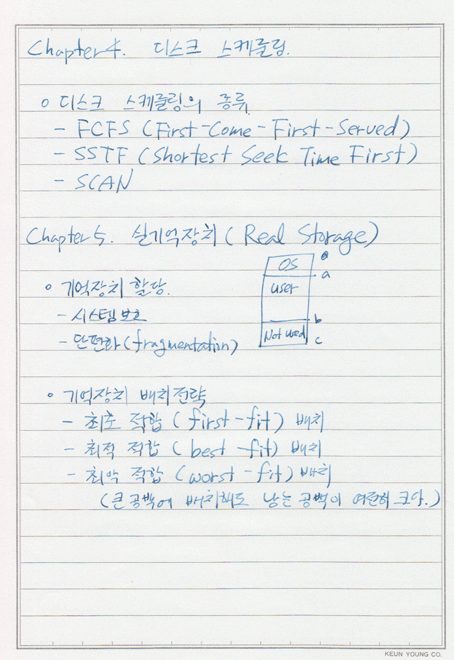 Chapter 4. 디스크 스케줄링.
o 디스크 스케줄링의 종류
- FCFS (First-Come-First-Served)
- SSTF (Shortest Seek Time First)
- SCAN
Chapter 5. 실기억장치 (Real Storage)
o 기억장치 할당.
- 시스템 보호
- 단편화 (fragmentation)
OS
a
user
b
Not used
c
o 기억장치 배치 전략
- 최초 적합 (first-fit) 배치
- 최적 적합 (best-fit) 배치
- 최악 적합 (worst-fit) 배치
(큰 공백에 배치해도 남는 공백이 여전히 크다.)
KEUN YOUNG CO.